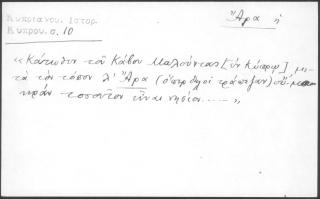 Κυπριανού. Ιστορ.
Κύπρου. σ. 10
Ἄρα ἡ
« Κάτωθεν τοῦ Κάβου Μαλούντας [ἐν Κύπρῳ]
τὰ τὸν τόπον λ' Ἄρα (ὅπερ τράπεζαν)
κρὰν τοσοῦτον εἶναι νησίον ..... »